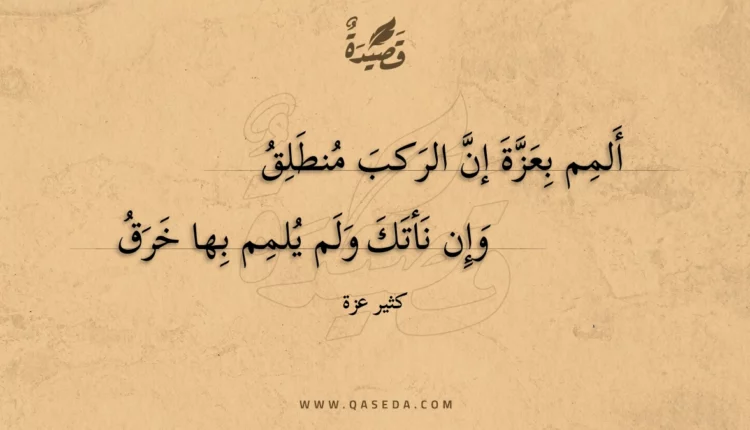 قَصِيدَةٌ
أَلمِم بِعَزَّةَ إنَّ الرَكبَ مُنطَلِقُ
وَإِن نَأتَكَ وَلَم يُلمِم بِها خَرَقُ
كثير عزة
WWW.QASEDA.COM